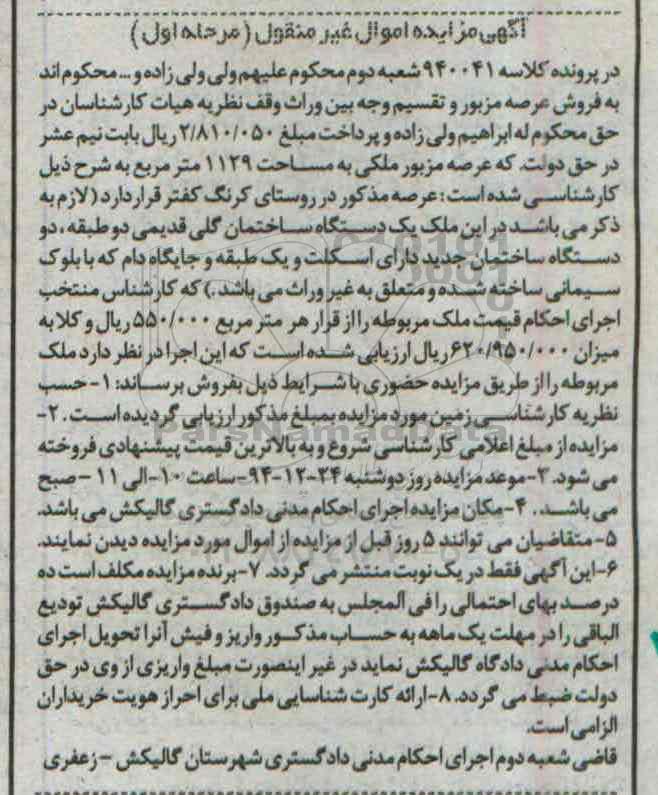 آگهی مزایده اموال غیر منقول (مرحله اول)
در پرونده کلاسه ۹۴۰۰۴۱ شعبه دوم محکوم علیهم ولی ولی زاده و... محکوم اند
به فروش عرصه مزبور و تقسیم وجه بین وراث وقف نظریه هیات کارشناسان در
حق محکوم له ابراهیم ولی زاده و پرداخت مبلغ ۲/۸۱۰/۰۵۰ ریال بابت نیم عشر
در حق دولت. که عرصه مزبور ملکی به مساحت ۱۱۲۹ متر مربع به شرح ذیل
کارشناسی شده است: عرصه مذکور در روستای کرنگ کفتر قرار دارد (لازم به
ذکر می باشد در این ملک یک دستگاه ساختمان گلی قدیمی دو طبقه، دو
دستگاه ساختمان جدید دارای اسکلت و یک طبقه و جایگاه دام که با بلوک
سیمانی ساخته شده و متعلق به غیر وراث می باشد.) که کارشناس منتخب
اجرای احکام قیمت ملک مربوطه را از قرار هر متر مربع ۵۵۰/۰۰۰ ریال و کلا به
میزان ۶۲۰/۹۵۰/۰۰۰ ریال ارزیابی شده است که این اجرا در نظر دارد ملک
مربوطه را از طریق مزایده حضوری با شرایط ذیل بفروش برساند: ۱- حسب
نظریه کارشناسی زمین مورد مزایده بمبلغ مذکور ارزیابی گردیده است. ۲-
مزایده از مبلغ اعلامی کارشناسی شروع و به بالاترین قیمت پیشنهادی فروخته
می شود. ۳- موعد مزایده روز دوشنبه ۲۴-۱۲-۹۴- ساعت ۱۰- الی ۱۱ - صبح
می باشد. . ۴- مکان مزایده اجرای احکام مدنی دادگستری گالیکش می باشد.
۵- متقاضیان می توانند ۵ روز قبل از مزایده از اموال مورد مزایده دیدن نمایند.
۶- این آگهی فقط در یک نوبت منتشر می گردد. ۷- برنده مزایده مکلف است ده
درصد بهای احتمالی را فی المجلس به صندوق دادگستری گالیکش تودیع
الباقی را در مهلت یک ماهه به حساب مذکور واریز و فیش آنرا تحویل اجرای
احکام مدنی دادگاه گالیکش نماید در غیر اینصورت مبلغ واریزی از وی در حق
دولت ضبط می گردد. ۸- ارائه کارت شناسایی ملی برای احراز هویت خریداران
الزامی است.
قاضی شعبه دوم اجرای احکام مدنی دادگستری شهرستان گالیکش - زعفری
ParsNamadData